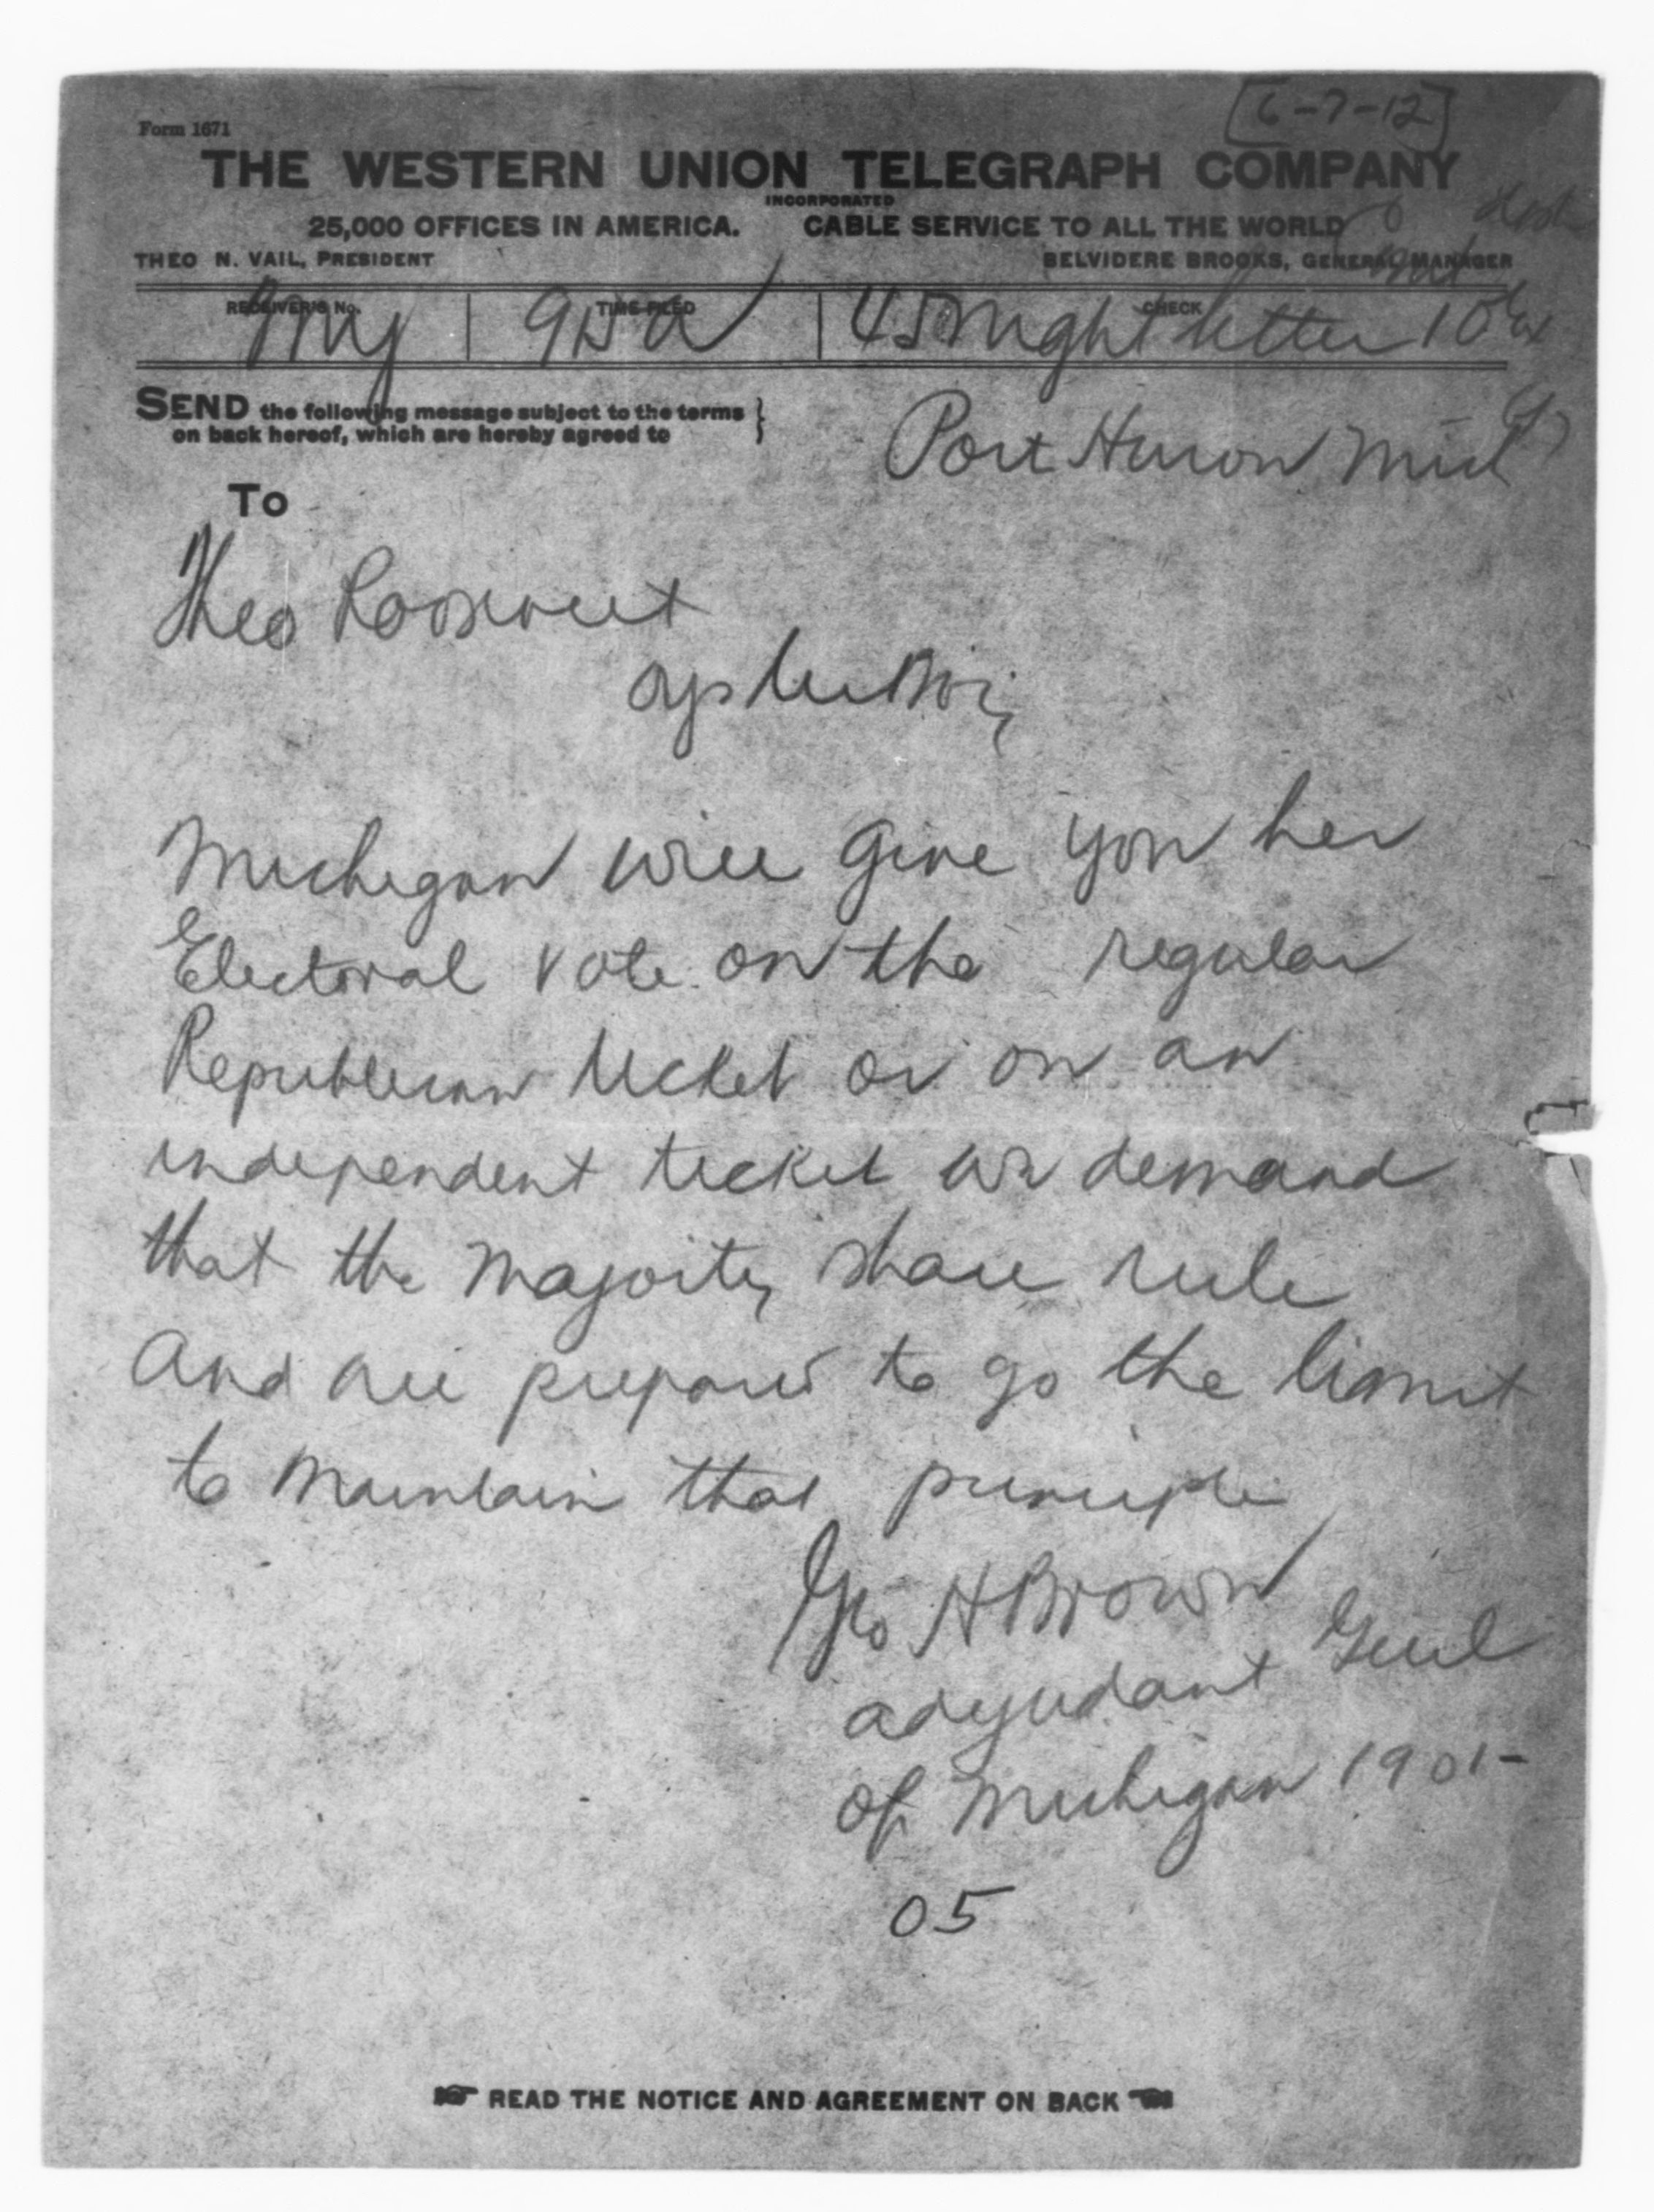 [6-7-12]
Form 1671
THE WESTERN UNION TELEGRAPH COMPANY
INCORPORATED
25,000 OFFICES IN AMERICA. CABLE SERVICE TO ALL THE WORLD
THEO N. VAIL, PRESIDENT BELVIDERE BROOKS, GENERAL MANAGER
RECEIVER'S No. TIME FILED CHECK
45 night letter
SEND the following message subject to the terms
on back hereof, which are hereby agreed to
Port Huron Mich
To
Theo Roosevelt
Oyster Bay
Michigan will give you her
Electoral vote on the regular
Republican ticket or on an
independent ticket we demand
that the majority shall rule
and are prepared to go the limit
to maintain that principle
Geo H Brown
adjudant Genl
of Michigan 1901-
05
READ THE NOTICE AND AGREEMENT ON BACK